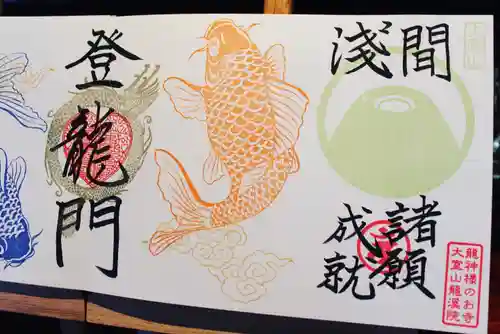 浅間
諸願
成就
登龍門
龍神様のお寺
大富山龍温院